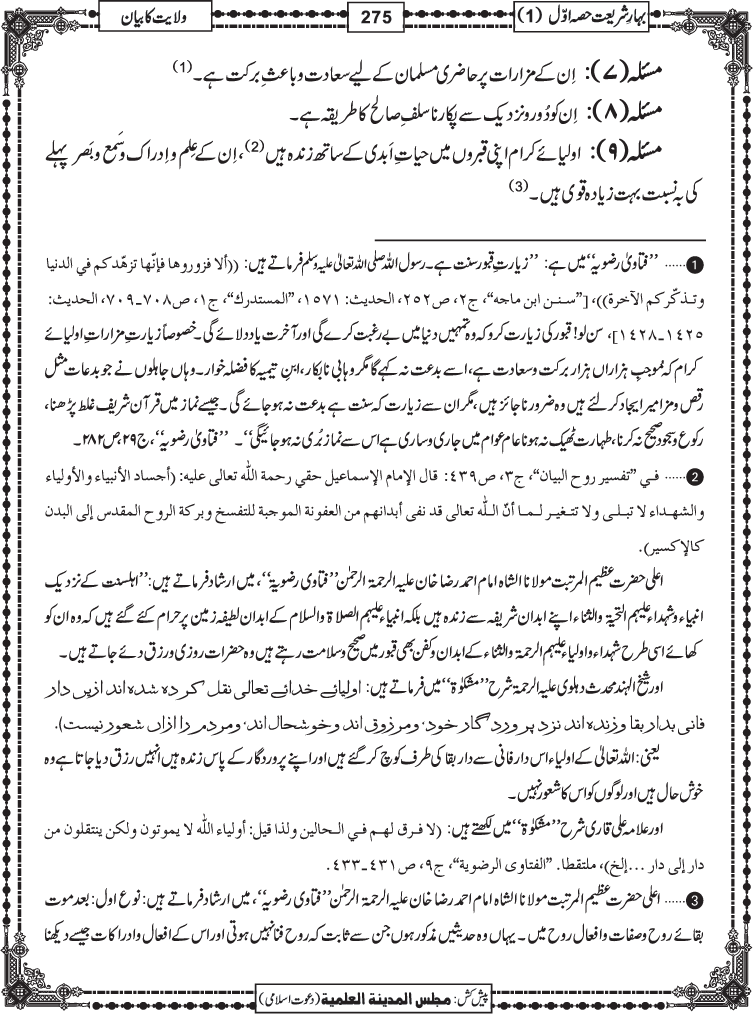 بہارِ شریعت حصہ اوّل (1)
275
ولایت کا بیان
مسئلہ (۷): اِن کے مزارات پر حاضری مسلمان کے لیے سعادت و باعثِ برکت ہے۔(1)
مسئلہ (۸): اِن کو دُور و نزدیک سے پکارنا سلفِ صالح کا طریقہ ہے۔
مسئلہ (۹): اولیائے کرام اپنی قبروں میں حیاتِ اَبدی کے ساتھ زندہ ہیں(2)، اِن کے عِلم و اِدراک و سَمع و بَصر پہلے
کی بہ نسبت بہت زیادہ قوی ہیں۔(3)
1...... ’’فتاویٰ رضویہ‘‘ میں ہے: ’’زیارتِ قبور سنت ہے۔ رسول اللہ صلی اللہ تعالیٰ علیہ وسلم فرماتے ہیں: ((ألا فزوروها فإنّها تزهّدكم في الدنيا
وتذكّركم الآخرة))، [”سنن ابن ماجه“، ج۲، ص۲۵۲، الحديث: ۱۵۷۱، ”المستدرك“، ج۱، ص۷۰۸-۷۰۹، الحديث:
۱۴۲۵-۱۴۲۸]، سن لو! قبور کی زیارت کرو کہ وہ تمہیں دنیا میں بے رغبت کرے گی اور آخرت یاد دلائے گی۔ خصوصاً زیارتِ مزاراتِ اولیائے
کرام کہ مُوجبِ ہزاراں ہزار برکت و سعادت ہے، اسے بدعت نہ کہے گا مگر وہابی نابکار، ابنِ تیمیہ کا فضلہ خوار۔ وہاں جاہلوں نے جو بدعات مثل
رقص و مزامیر ایجاد کر لئے ہیں وہ ضرور ناجائز ہیں، مگر ان سے زیارت کہ سنت ہے بدعت نہ ہو جائے گی۔ جیسے نماز میں قرآن شریف غلط پڑھنا،
رکوع و سجود صحیح نہ کرنا، طہارت ٹھیک نہ ہونا عام عوام میں جاری و ساری ہے اس سے نماز بُری نہ ہو جائیگی‘‘۔ ’’فتاویٰ رضویہ‘‘، ج۲۹، ص۲۸۲۔
2...... في ”تفسير روح البيان“، ج۳، ص۴۳۹: قال الإمام الإسماعيل حقي رحمة الله تعالى عليه: (أجساد الأنبياء والأولياء
والشهداء لا تبلى ولا تتغير لما أنّ الله تعالى قد نفى أبدانهم من العفونة الموجبة للتفسخ وبركة الروح المقدس إلى البدن
كالإكسير).
اعلی حضرت عظیم المرتبت مولانا الشاہ امام احمد رضا خان علیہ الرحمۃ الرحمٰن ’’فتاوی رضویہ‘‘، میں ارشاد فرماتے ہیں: ’’اہلسنت کے نزدیک
انبیاء و شہداء علیہم التحیۃ والثناء اپنے ابدانِ شریفہ سے زندہ ہیں بلکہ انبیاء علیہم الصلاۃ والسلام کے ابدانِ لطیفہ زمین پر حرام کئے گئے ہیں کہ وہ ان کو
کھائے اسی طرح شہداء و اولیاء علیہم الرحمۃ والثناء کے ابدان و کفن بھی قبور میں صحیح و سلامت رہتے ہیں وہ حضرات روزی و رزق دئے جاتے ہیں۔
اور شیخ الہند محدث دہلوی علیہ الرحمۃ شرح ’’مشکوٰۃ‘‘ میں فرماتے ہیں: اوليائے خدائے تعالی نقل کرده شده اند ازيں دار
فانی بدار بقا وزنده اند نزد پروردگار خود، ومرزوق اند وخوشحال اند، ومردم را ازاں شعور نيست).
یعنی: اللہ تعالیٰ کے اولیاء اس دار فانی سے دار بقا کی طرف کوچ کر گئے ہیں اور اپنے پروردگار کے پاس زندہ ہیں انہیں رزق دیا جاتا ہے وہ
خوش حال ہیں اور لوگوں کو اس کا شعور نہیں۔
اور علامہ علی قاری شرح ’’مشکوٰۃ‘‘ میں لکھتے ہیں: (لا فرق لهم في الحالين ولذا قيل: أولياء الله لا يموتون ولكن ينتقلون من
دار إلى دار ...إلخ)، ملتقطا. ”الفتاوى الرضوية“، ج۹، ص۴۳۱-۴۳۳.
3...... اعلی حضرت عظیم المرتبت مولانا الشاہ امام احمد رضا خان علیہ الرحمۃ الرحمٰن ’’فتاوی رضویہ‘‘، میں ارشاد فرماتے ہیں: نوع اول: بعد موت
بقائے روح و صفات و افعال روح میں۔ یہاں وہ حدیثیں مذکور ہوں جن سے ثابت کہ روح فنا نہیں ہوتی اور اس کے افعال و ادراکات جیسے دیکھنا
پیش کش: مجلس المدينة العلمية (دعوت اسلامی)